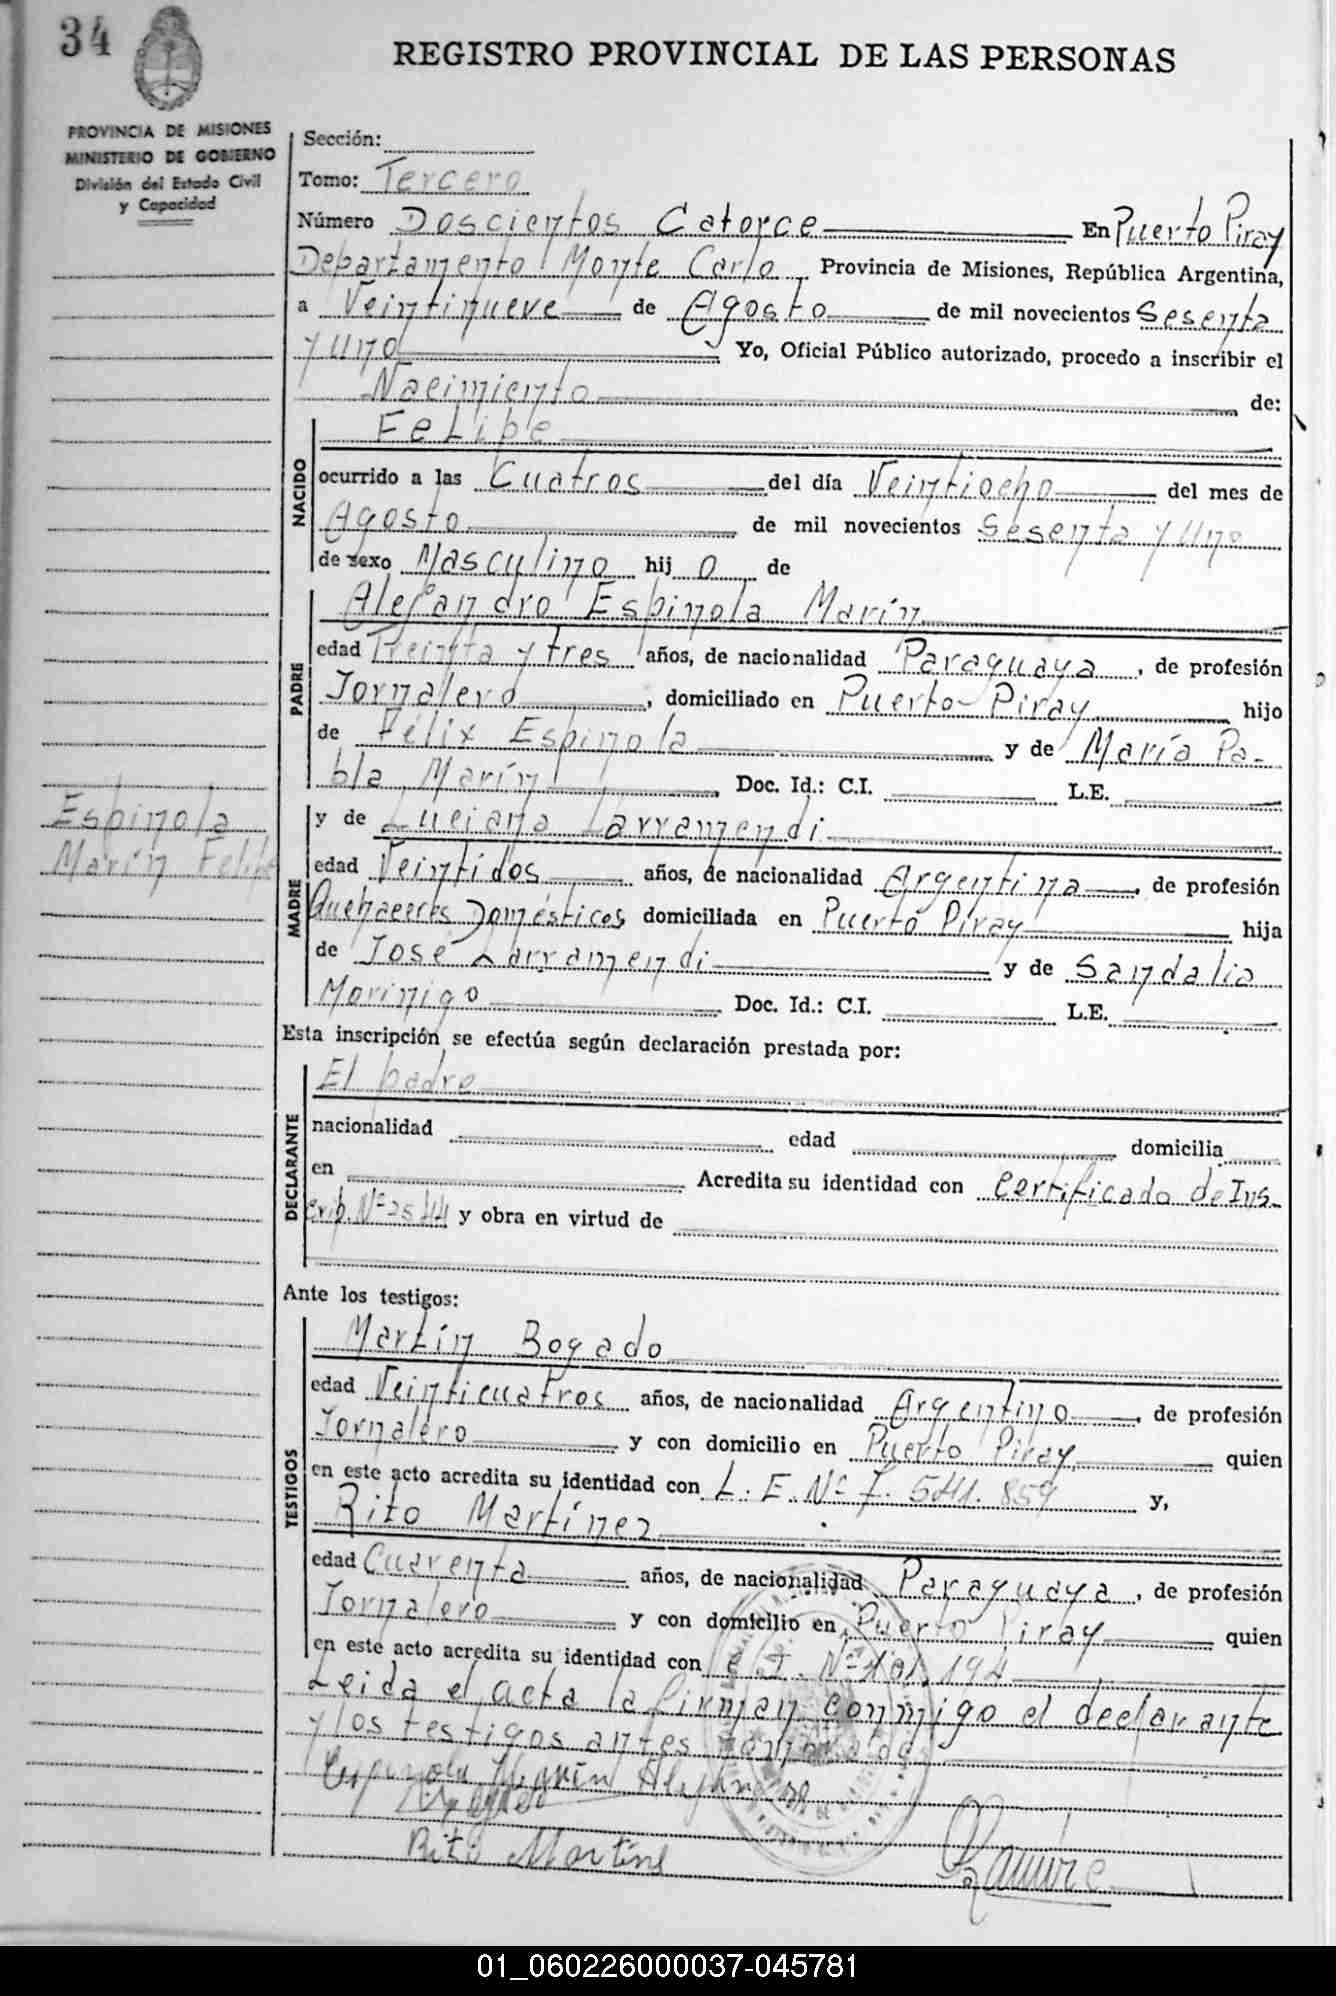 34
REGISTRO PROVINCIAL DE LAS PERSONAS
PROVINCIA DE MISIONES
MINISTERIO DE GOBIERNO
División del Estado Civil
y Capacidad
Sección:
Tomo: Tercero
Número Doscientos Catorce En Puerto Piray
Departamento Monte Carlo Provincia de Misiones, República Argentina,
a Veintinueve de Agosto de mil novecientos Sesenta
y uno Yo, Oficial Público autorizado, procedo a inscribir el
Nacimiento de:
NACIDO
Felipe
ocurrido a las Cuatros del día Veintiocho del mes de
Agosto de mil novecientos Sesenta y Uno
de sexo Masculino hij o de
PADRE
Alejandro Espinola Marín
edad Treinta y tres años, de nacionalidad Paraguaya, de profesión
Jornalero, domiciliado en Puerto Piray hijo
de Félix Espinola y de María Pa-
bla Marín Doc. Id.: C.I. L.E.
Espinola
Marín Felipe
MADRE
y de Luciana Larramendi
edad Veintidos años, de nacionalidad Argentina, de profesión
Quehaceres Domésticos domiciliada en Puerto Piray hija
de José Larramendi y de Sandalia
Morinigo Doc. Id.: C.I. L.E.
Esta inscripción se efectúa según declaración prestada por:
DECLARANTE
El padre
nacionalidad edad domicilia
en Acredita su identidad con Certificado de Ins-
crip. Nº 2544 y obra en virtud de
Ante los testigos:
TESTIGOS
Martín Bogado
edad Veinticuatros años, de nacionalidad Argentino, de profesión
Jornalero y con domicilio en Puerto Piray quien
en este acto acredita su identidad con L.E. Nº 7.541.859 y,
Rito Martínez
edad Cuarenta años, de nacionalidad Paraguaya, de profesión
Jornalero y con domicilio en Puerto Piray quien
en este acto acredita su identidad con C.I. Nº 101.194
Leida el acta la firman conmigo el declarante
y los testigos antes
Espinola Marin Alejandro
Rito Martine
01_060226000037-045781